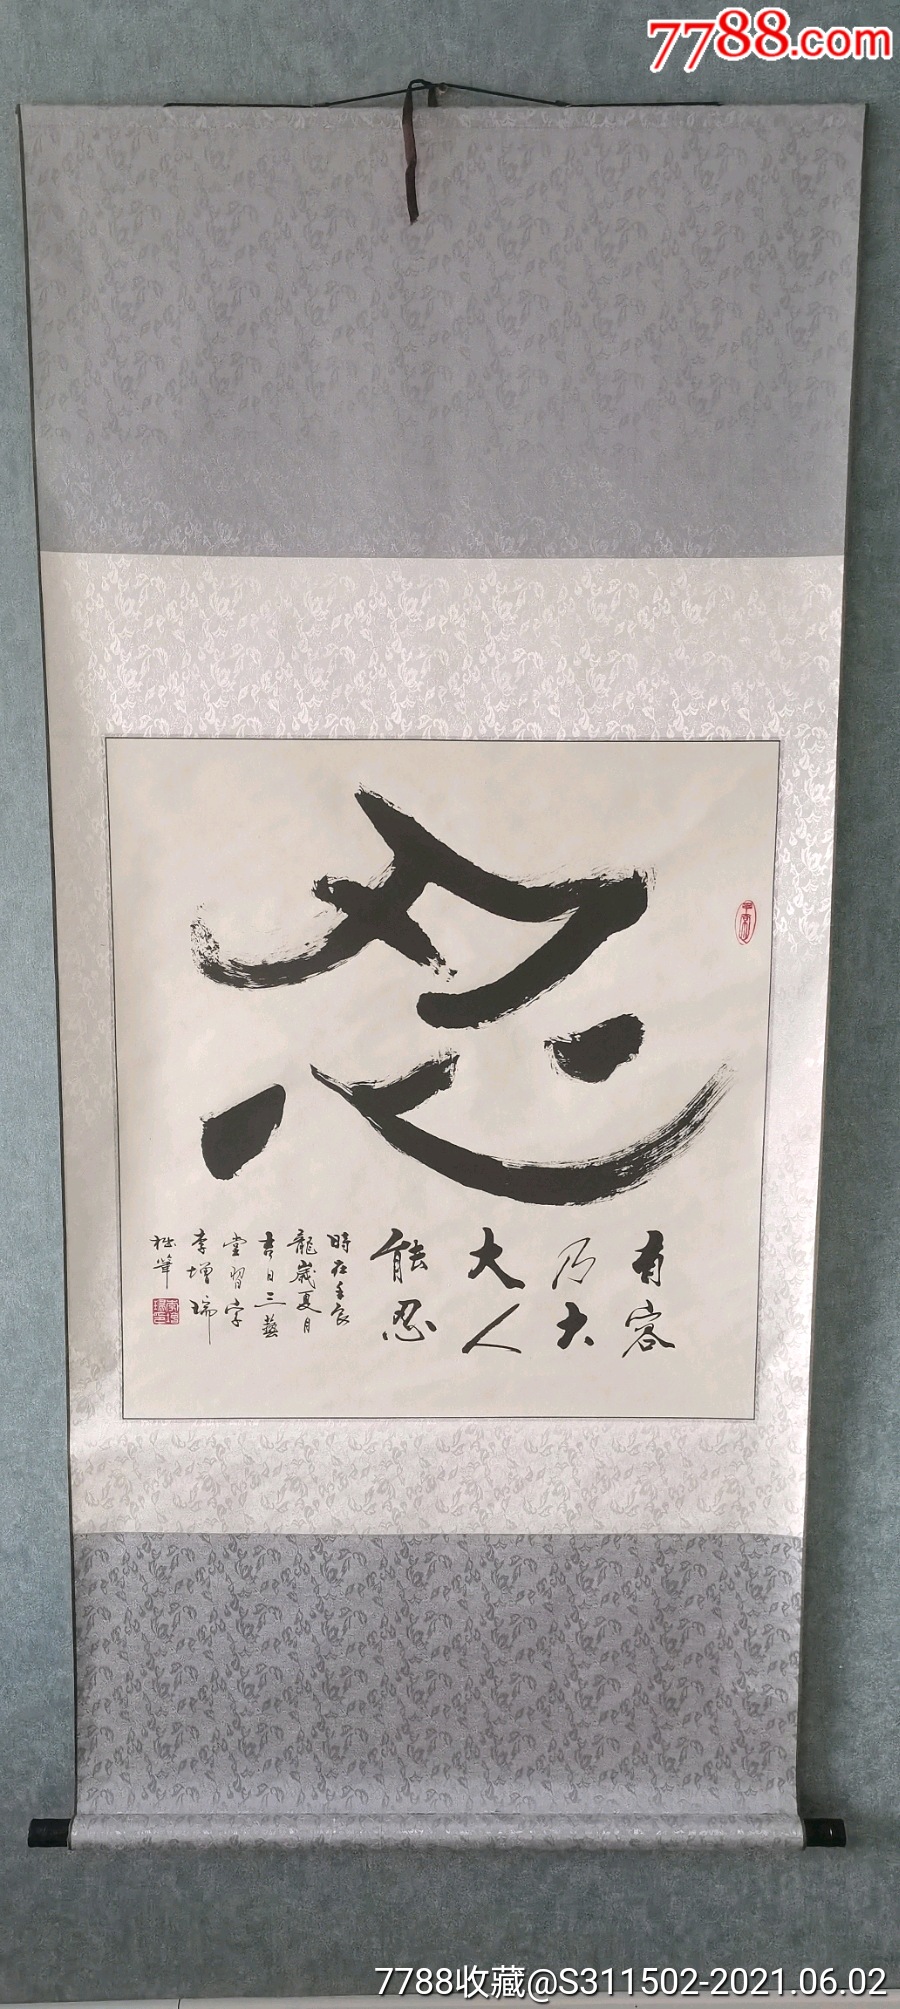 7788.com
忍
有容
乃大
大人
能忍
時在壬辰
龍歲夏月
吉日三藝
堂習字
李增瑞
拙筆
7788收藏@S311502-2021.06.02